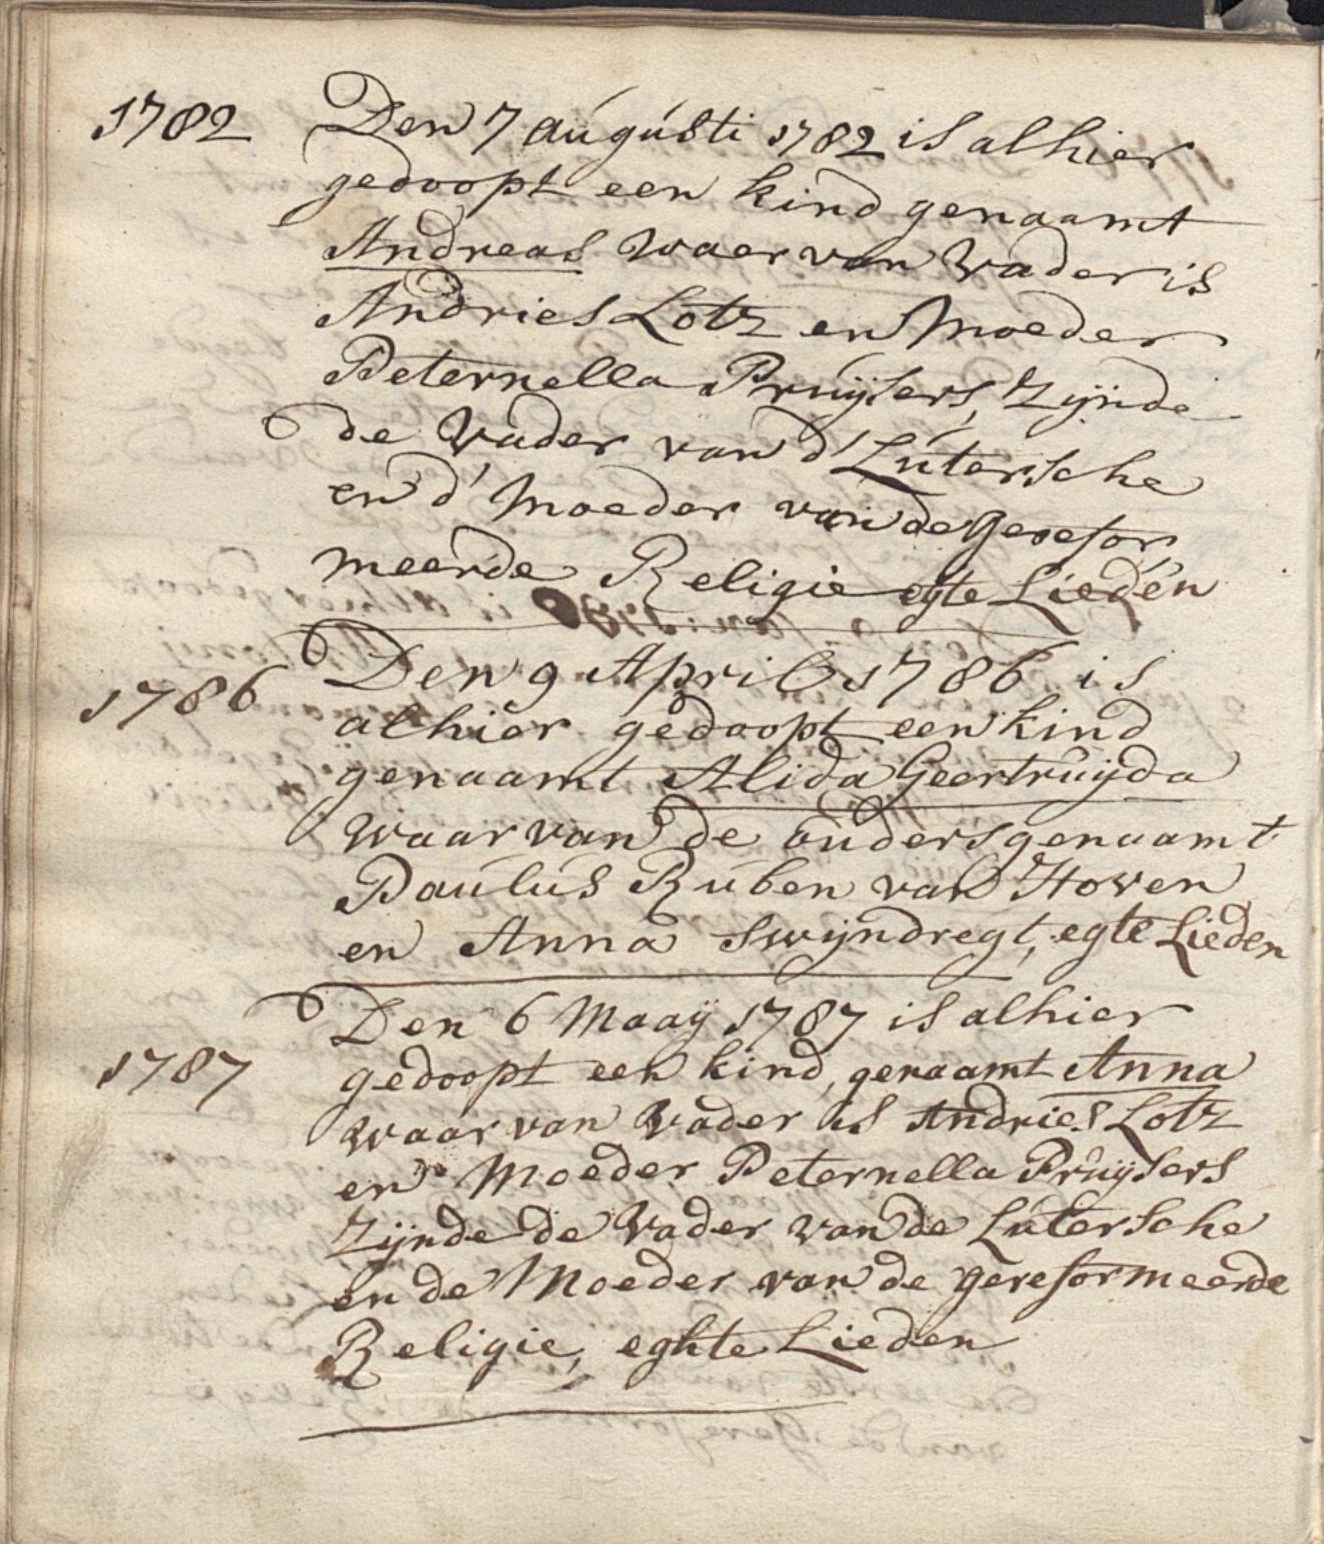 1782 Den 7 augústi 1782 is alhier
gedoopt een kind genaamt
Andreas waer van vader is
Andries Lotz en Moeder
Peternella Pruÿsers, zijnde
de Vader van d' Lútersche
en d' Moeder van de Gerefor,
meerde Religie egte Lieden
1786 Den 9 April 1786 is
alhier gedoopt een kind
genaamt Alida Geertruÿda
waar van de oúders genaamt
Paúlús Rúben van Hoven
en Anna Swijndregt, egte Lieden
1787 Den 6 Maaÿ 1787 is alhier
gedoopt een kind, genaamt Anna
waar van Vader is Andries Lotz
en Moeder Peternella Prúÿsers
zijnde de Vader van de Lútersche
en de Moeder van de gereformeerde
Religie, eghte Lieden